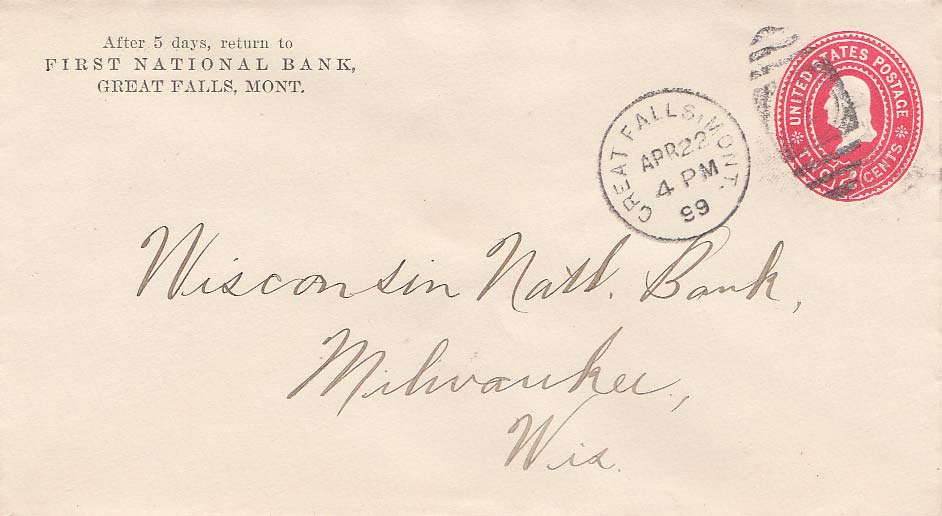 After 5 days, return to
FIRST NATIONAL BANK,
GREAT FALLS, MONT.
GREAT FALLS, MONT.
APR 22
4 PM
99
UNITED STATES POSTAGE
TWO 2 CENTS
Wisconsin Natl. Bank,
Milwaukee,
Wis.